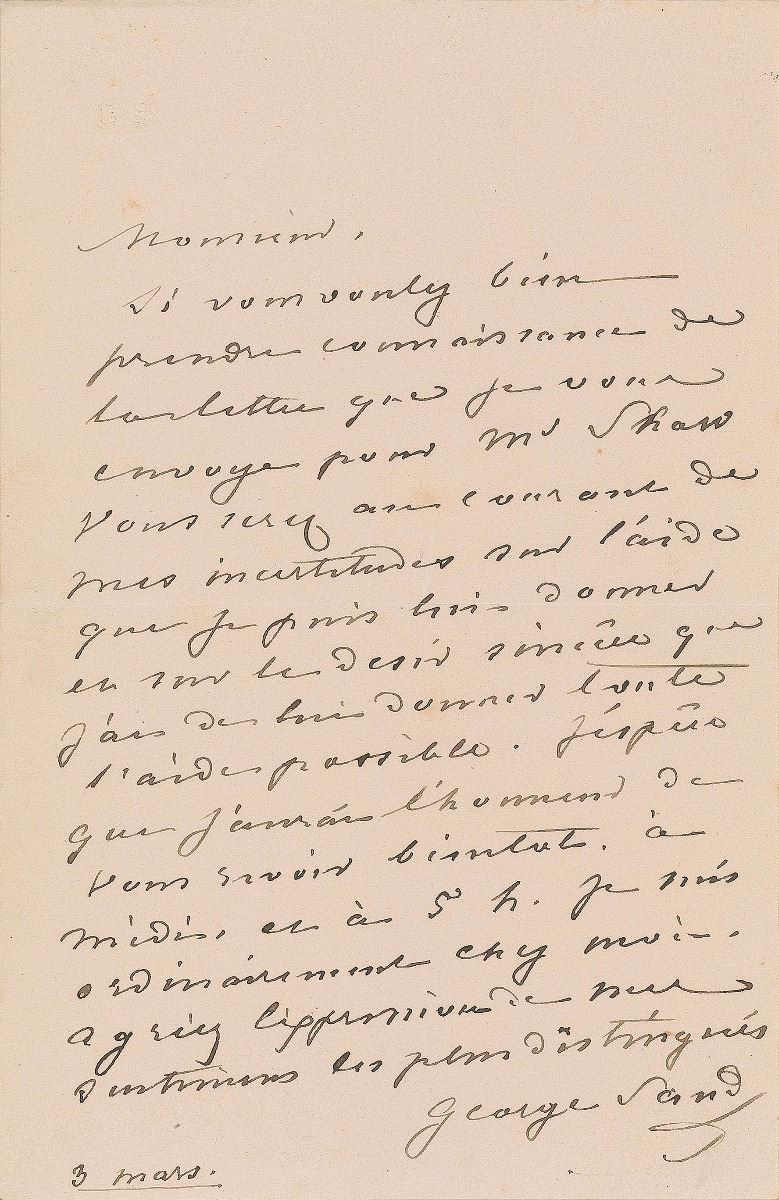 Monsieur,
Si vous voulez bien
prendre connaissance de
la lettre que je vous
envoye pour Mr Shaw
Vous serez au courant de
mes incertitudes sur l'aide
que je puis lui donner
et sur le desir sincère que
j'ai de lui donner toute
l'aide possible. J'éspère
que j'aurai l'honneur de
vous revoir bientot. à
midi, et à 5 h. je suis
ordinairement chez moi.
agréez l'expression de mes
sentimens les plus distingués
George Sand
3 mars.